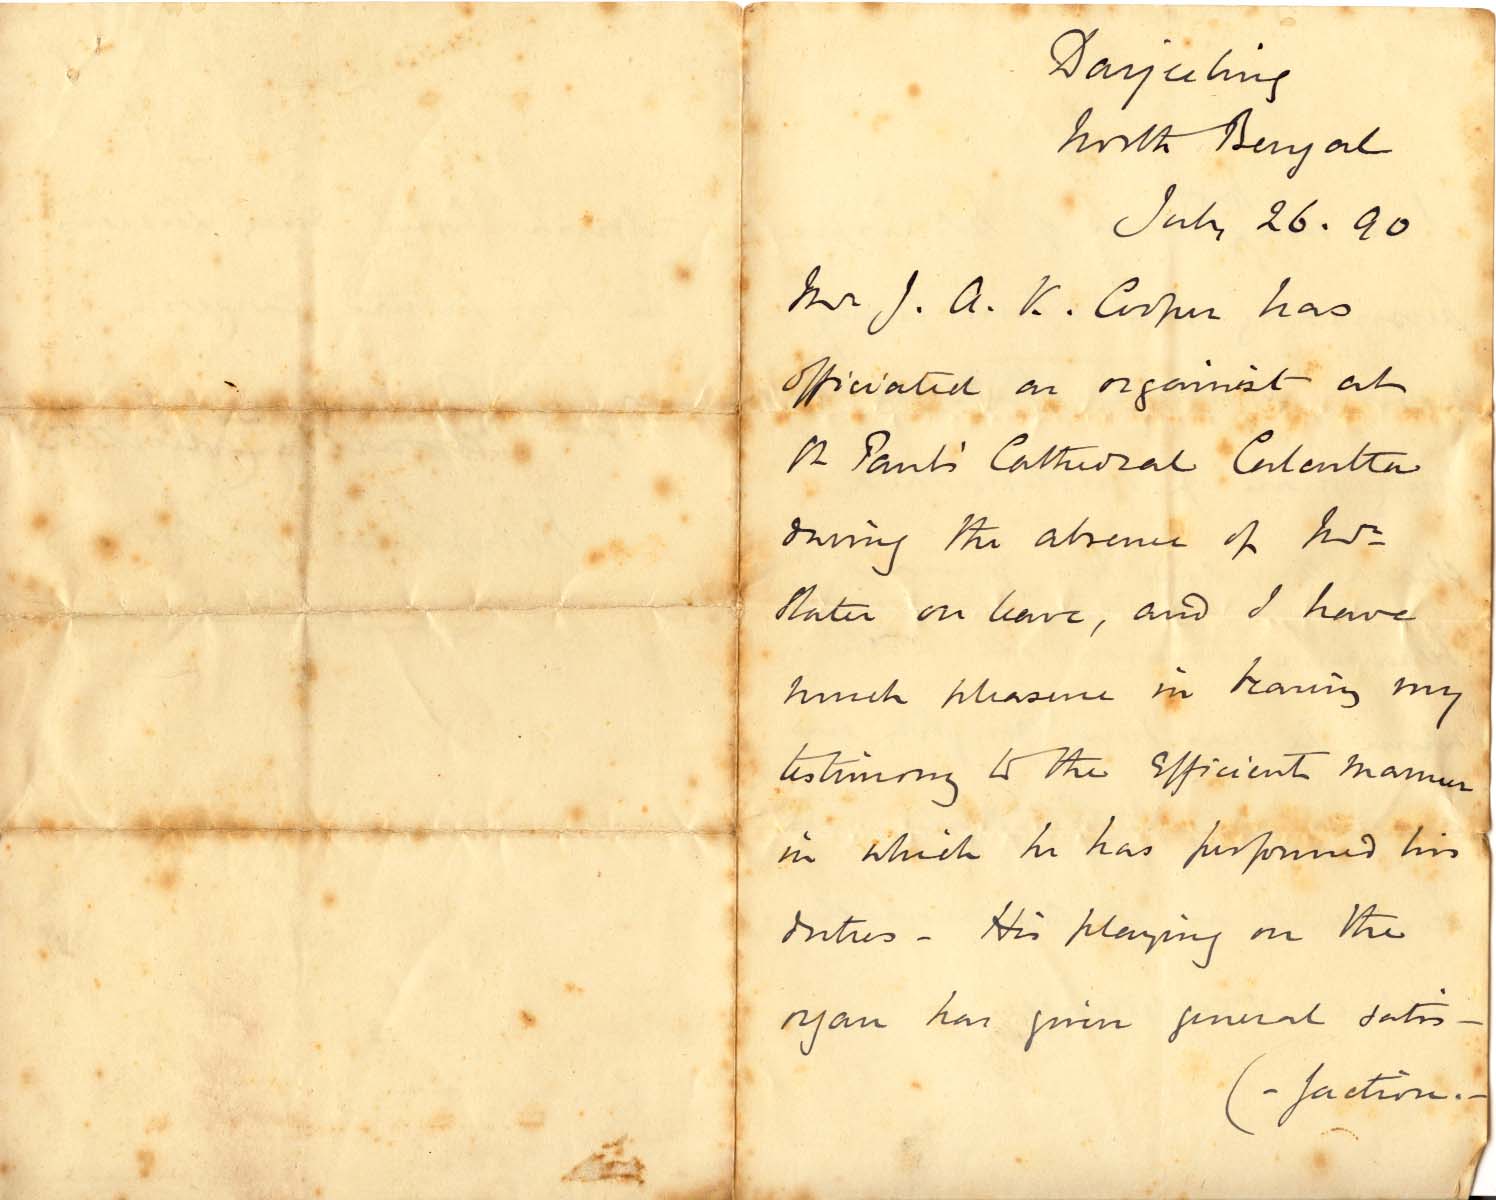 Darjeeling
North Bengal
July 26. 90
Mr J. A. K. Cooper has
officiated as organist at
St Paul's Cathedral Calcutta
during the absence of Mr
Slater on leave, and I have
much pleasure in bearing my
testimony to the efficient manner
in which he has performed his
duties - His playing on the
organ has given general satis-
(-faction.-